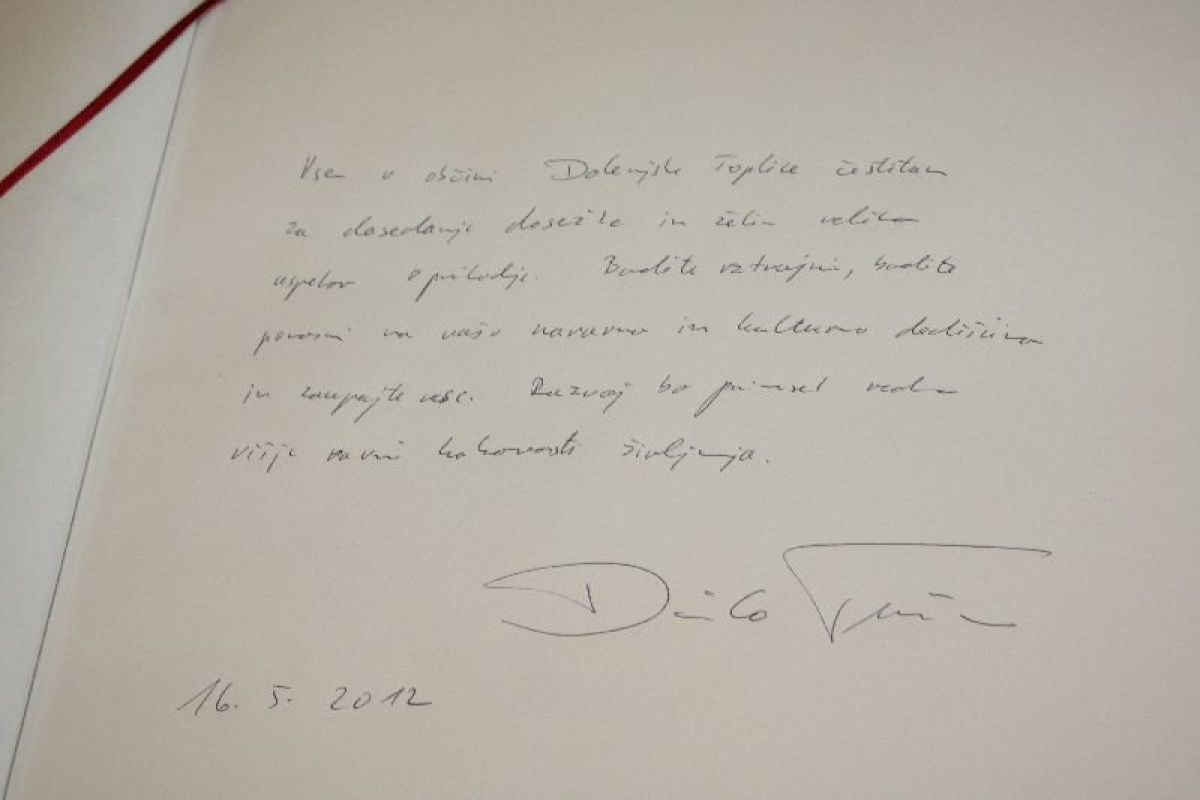 Vsem v občini Dolenjske Toplice čestitam
za dosedanje dosežke in želim veliko
uspehov v prihodnje. Bodite vztrajni, bodite
ponosni na vašo naravno in kulturno dediščino
in zaupajte vase. Razvoj bo prinesel vedno
višje ravni kakovosti življenja.
Danilo Türk
16. 5. 2012